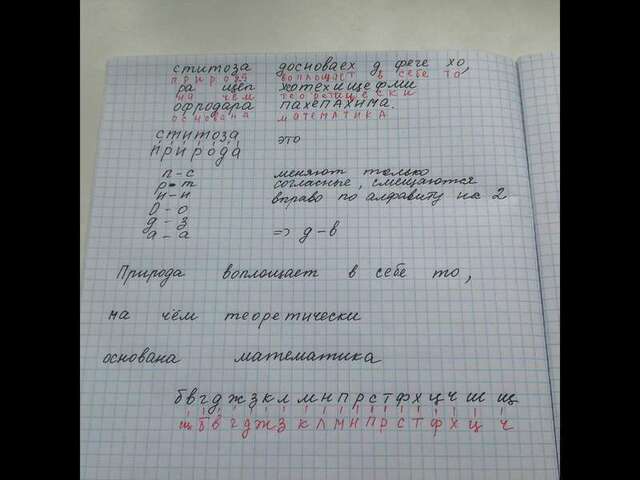 ститоза досноваех д фече хо,
природа воплощает в себе то
ра щеп хотехищефми
на чём теоретически
офродара пахепахима.
основана математика
ститоза это
природа
п - с меняют только
р - т согласные, смещаются
и - и вправо по алфавиту на 2
о - о
д - з => д - в
а - а
Природа воплощает в себе то,
на чём теоретически
основана математика
б в г д ж з к л м н п р с т ф х ц ч ш щ
щ б в г д ж з к л м н п р с т ф х ц ч